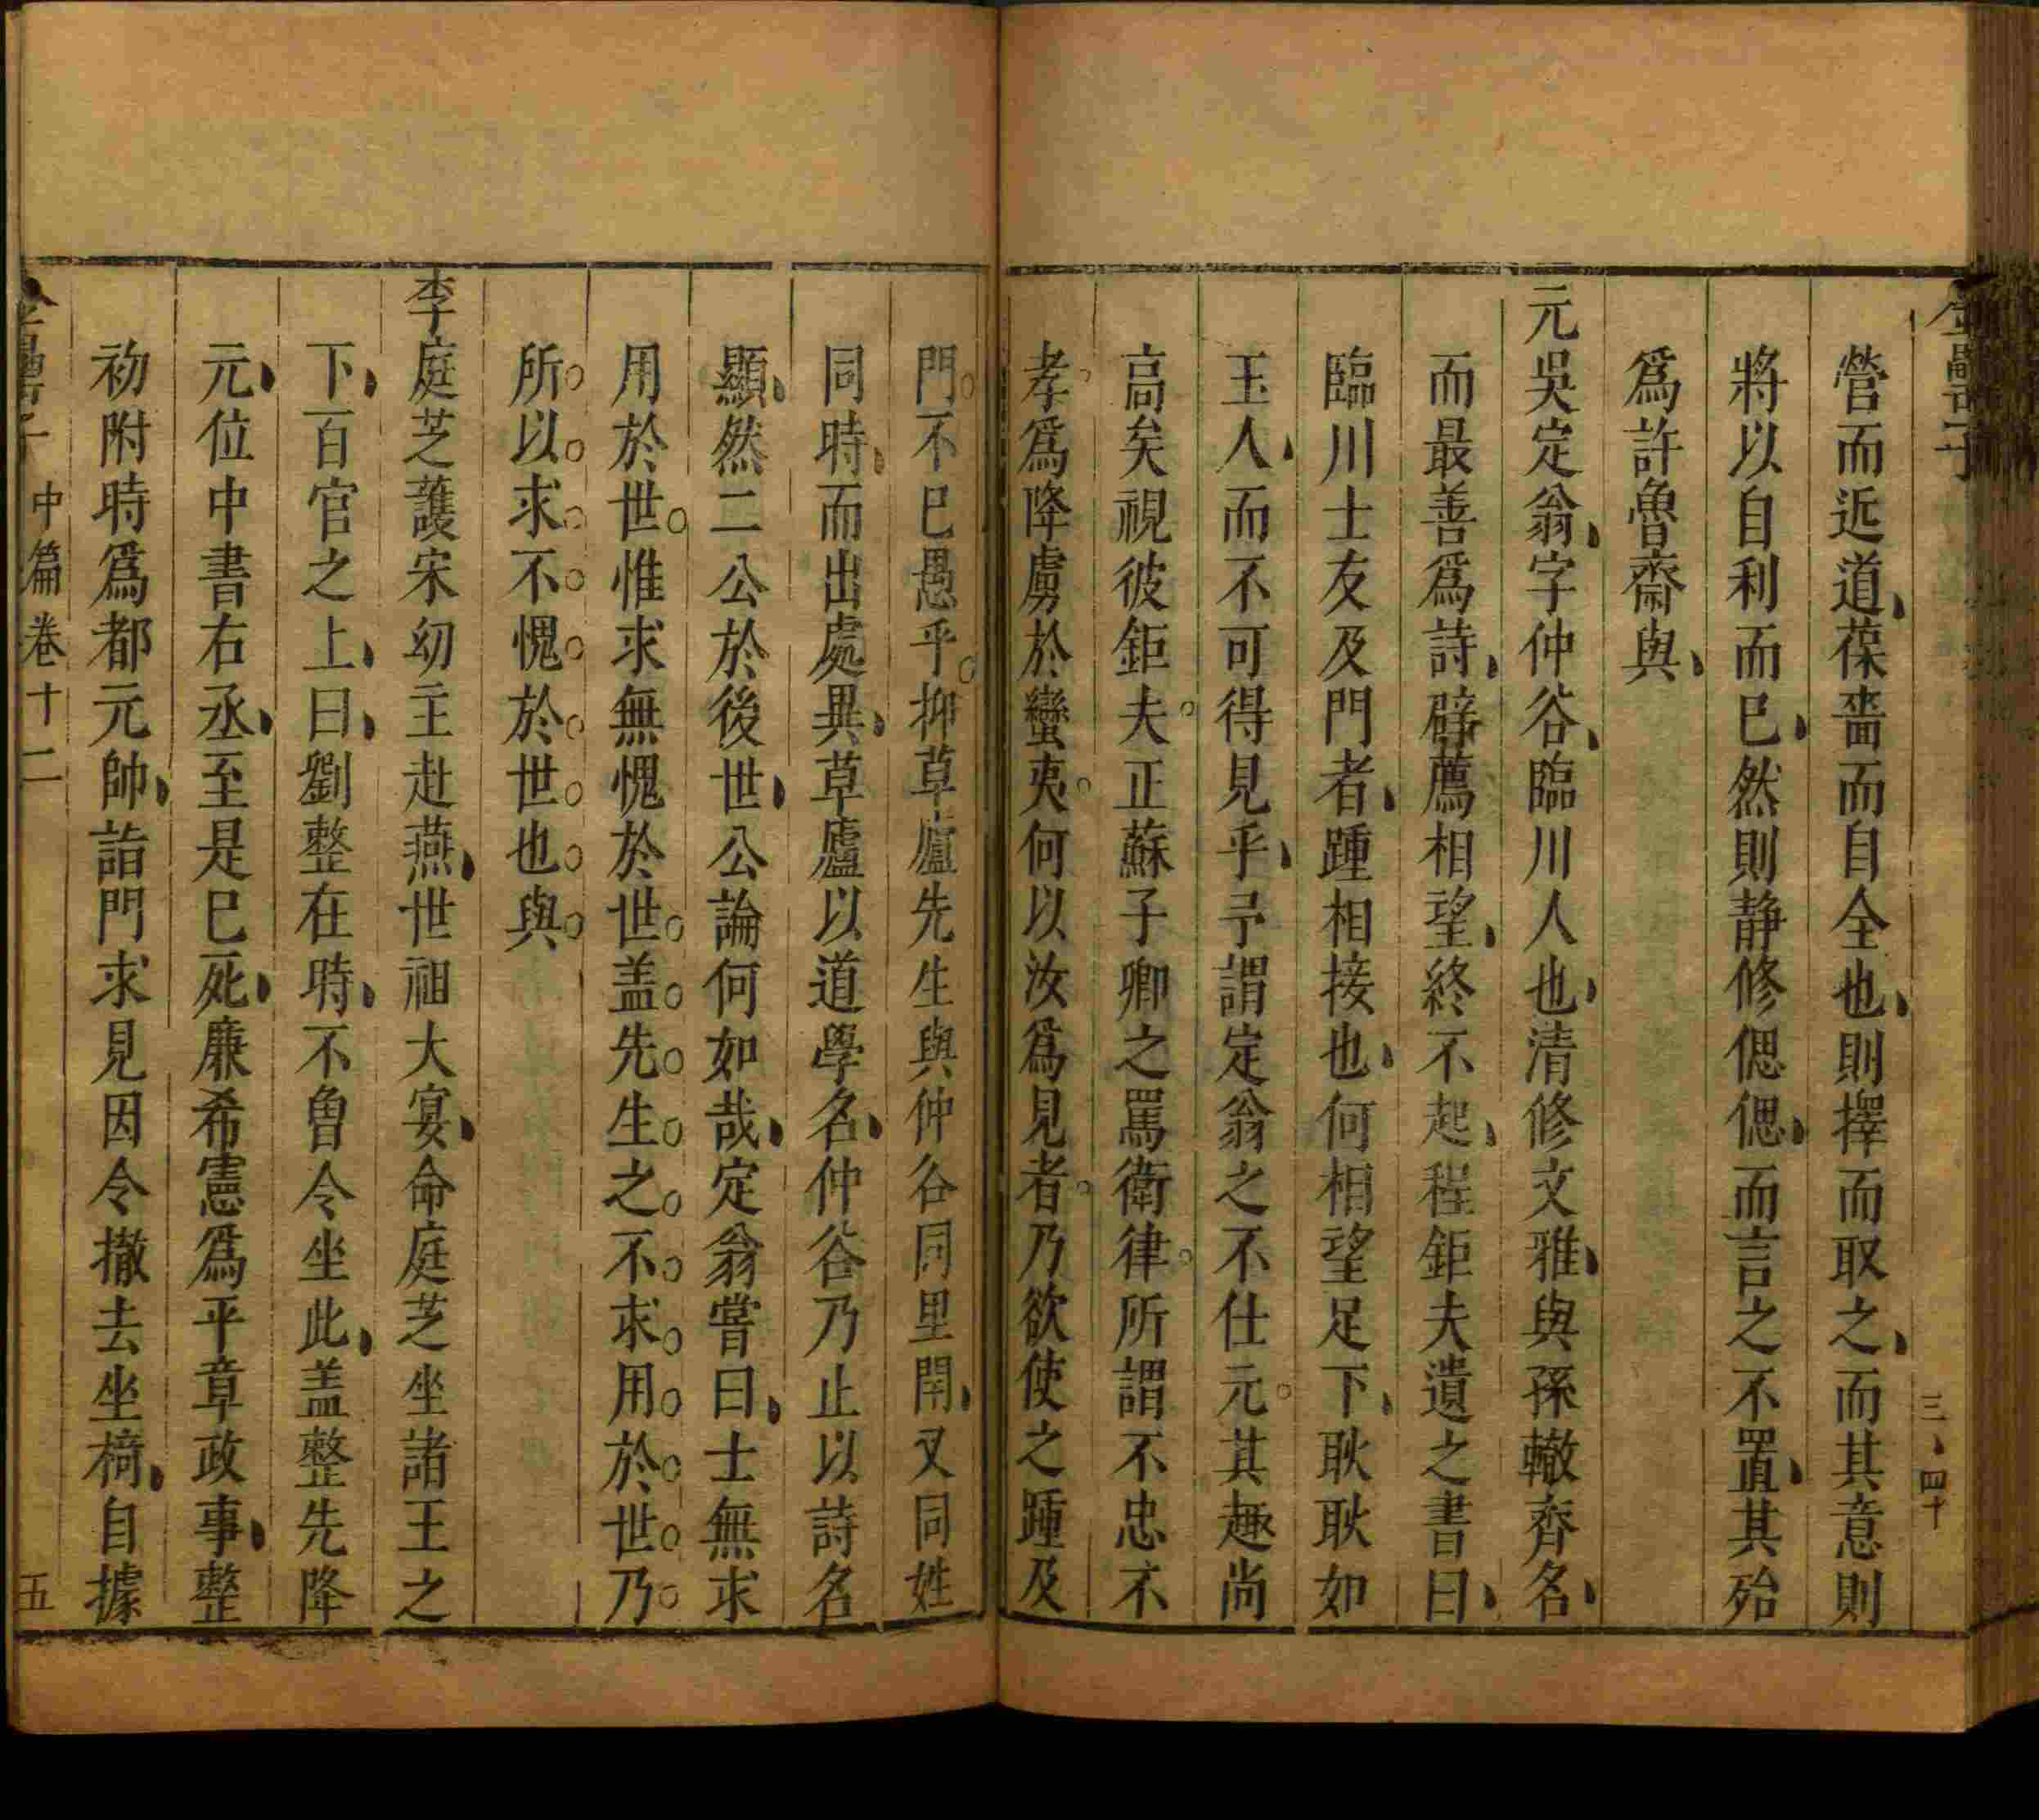 營而近道葆嗇而自全也則擇而取之而其意則
將以自利而已然則静修偲偲而言之不置其殆
爲許魯齋與
元吳定翁字仲谷臨川人也清修文雅與孫轍齊名
而最善爲詩辟薦相望終不起程鉅夫遺之書曰
臨川士友及門者踵相接也何相望足下耿耿如
玉人而不可得見乎予謂定翁之不仕元其趣尚
高矣視彼鉅夫正蘇子卿之罵衛律所謂不忠不
孝爲降虜於蠻夷何以汝爲見者乃欲使之踵及
門不已愚乎抑草廬先生與仲谷同里閈又同姓
同時而出處異草廬以道學名仲谷乃止以詩名
顯然二公於後世公論何如哉定翁嘗曰士無求
用於世惟求無愧於世盖先生之不求用於世乃
所以求不愧於世也與
李庭芝護宋幼主赴燕世祖大宴命庭芝坐諸王之
下百官之上曰劉整在時不曽令坐此盖整先降
元位中書右丞至是已死廉希憲爲平章政事整
初附時爲都元帥詣門求見因令撤去坐椅自據
中篇卷十二
五